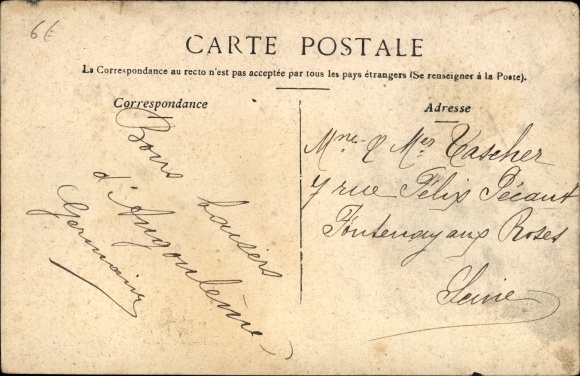 6€
CARTE POSTALE
La Correspondance au recto n'est pas acceptée par tous les pays étrangers (Se renseigner à la Poste).
Correspondance
Bons baisers
d'Angoulême
Germaine
Adresse
Mme & Mr Tascher
7 rue Félix Pécaut
Fontenay aux Roses
Seine